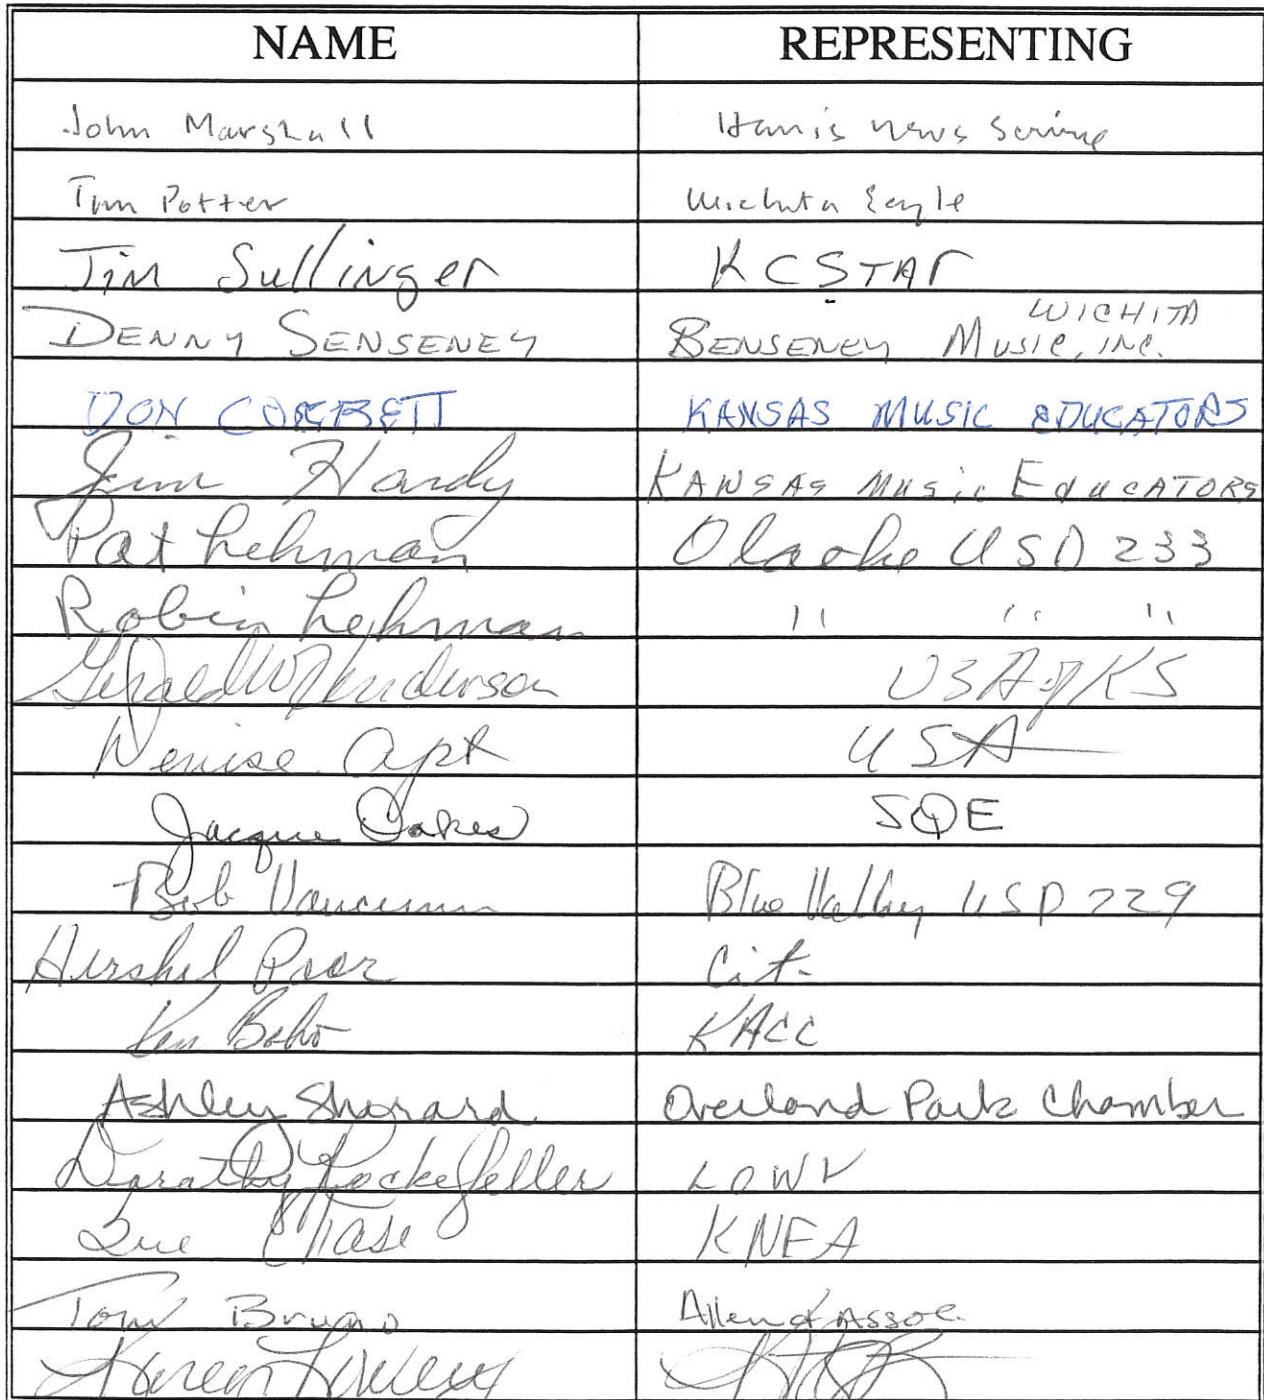 NAME REPRESENTING
John Marshall Harris News Service
Tim Potter Wichita Eagle
Jim Sullinger KC STAR
WICHITA
DENNY SENSENEY SENSENEY MUSIC, INC.
DON CORBETT KANSAS MUSIC EDUCATORS
Jim Hardy KANSAS MUSIC EDUCATORS
Pat Lehman Olathe USD 233
Robin Lehman " " "
Gerald W Henderson USA of KS
Denise Apt USA
Jacque Oakes SQE
Bob Vancrum Blue Valley USD 229
Hershel Cit.
Ken KACC
Ashley Sherard Overland Park Chamber
Dorothy Rockefeller
Sue Chase KNEA
Tom Bruno Allen & Assoc.
Karen